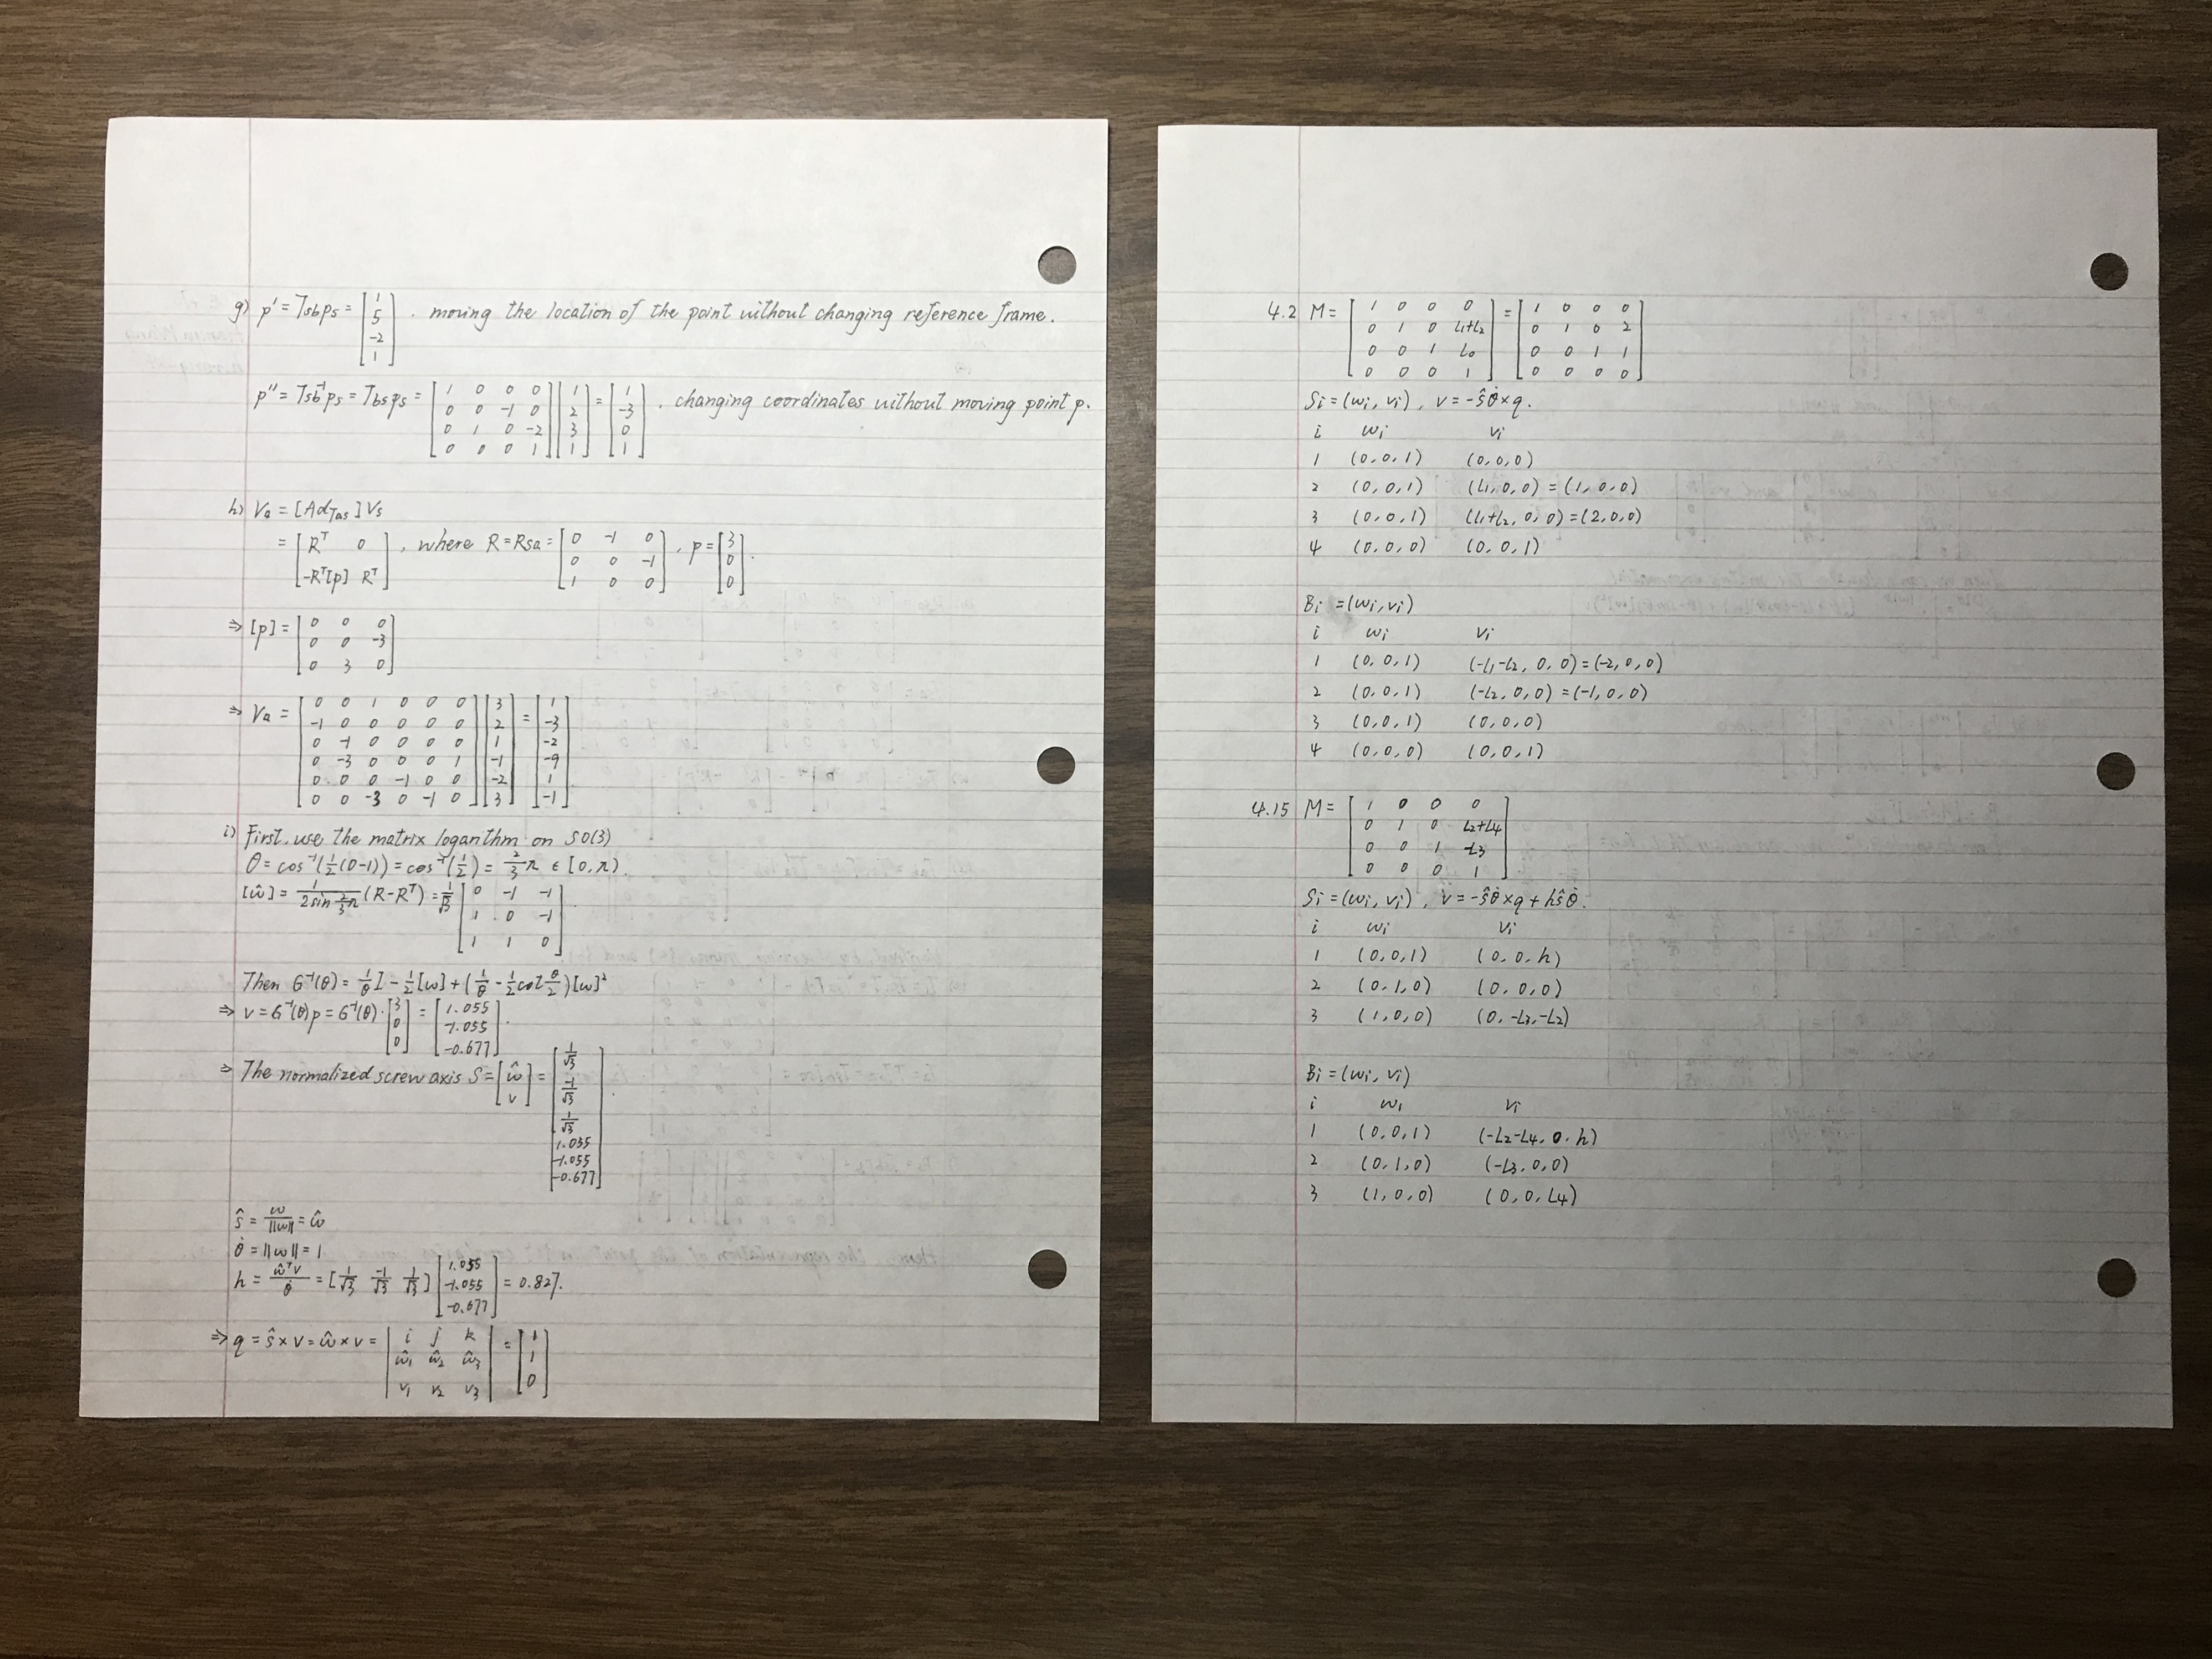 g) p' = Tsb ps = [1; 5; -2; 1] . moving the location of the point without changing reference frame.
p'' = Tsb⁻¹ ps = Tbs ps = [1 0 0 0; 0 0 -1 0; 0 1 0 -2; 0 0 0 1] [1; 2; 3; 1] = [1; -3; 0; 1] . changing coordinates without moving point p.
h) Va = [AdTas] Vs
= [Rᵀ 0; -Rᵀ[p] Rᵀ] , where R = Rsa = [0 -1 0; 0 0 -1; 1 0 0] , p = [3; 0; 0] .
⇒ [p] = [0 0 0; 0 0 -3; 0 3 0]
⇒ Va = [0 0 1 0 0 0; -1 0 0 0 0 0; 0 -1 0 0 0 0; 0 -3 0 0 0 1; 0 0 0 -1 0 0; 0 0 -3 0 -1 0] [3; 2; 1; -1; -2; 3] = [1; -3; -2; -9; 1; -1] .
i) First. use the matrix logarithm on SO(3)
θ = cos⁻¹(1/2(0-1)) = cos⁻¹(1/2) = 2/3 π ∈ [0, π).
[ŵ] = 1/(2sin 2/3 π) (R-Rᵀ) = 1/√3 [0 -1 -1; 1 0 -1; 1 1 0] .
Then G⁻¹(θ) = 1/θ I - 1/2 [w] + (1/θ - 1/2 cot θ/2)[w]²
⇒ v = G⁻¹(θ)p = G⁻¹(θ)·[3; 0; 0] = [1.055; -1.055; -0.677] .
⇒ The normalized screw axis S = [ŵ; v] = [1/√3; -1/√3; 1/√3; 1.055; -1.055; -0.677] .
ŝ = w/||w|| = ŵ
θ̇ = ||w|| = 1
h = ŵᵀv/θ̇ = [1/√3 -1/√3 1/√3] [1.055; -1.055; -0.677] = 0.827.
⇒ q = ŝ × v = ŵ × v = |i j k; ŵ₁ ŵ₂ ŵ₃; v₁ v₂ v₃| = [1; 1; 0]
4.2 M = [1 0 0 0; 0 1 0 L1+L2; 0 0 1 L0; 0 0 0 1] = [1 0 0 0; 0 1 0 2; 0 0 1 1; 0 0 0 0]
Si = (wi, vi) , v = -ŝθ̇ × q.
i wi vi
1 (0,0,1) (0,0,0)
2 (0,0,1) (L1,0,0) = (1,0,0)
3 (0,0,1) (L1+L2, 0, 0) = (2,0,0)
4 (0,0,0) (0,0,1)
Bi = (wi, vi)
i wi vi
1 (0,0,1) (-L1-L2, 0, 0) = (-2,0,0)
2 (0,0,1) (-L2, 0,0) = (-1,0,0)
3 (0,0,1) (0,0,0)
4 (0,0,0) (0,0,1)
4.15 M = [1 0 0 0; 0 1 0 L2+L4; 0 0 1 -L3; 0 0 0 1]
Si = (wi, vi) , v = -ŝθ̇ × q + hŝθ̇.
i wi vi
1 (0,0,1) (0,0,h)
2 (0,1,0) (0,0,0)
3 (1,0,0) (0,-L3,-L2)
Bi = (wi, vi)
i wi vi
1 (0,0,1) (-L2-L4, 0, h)
2 (0,1,0) (-L3,0,0)
3 (1,0,0) (0,0,L4)